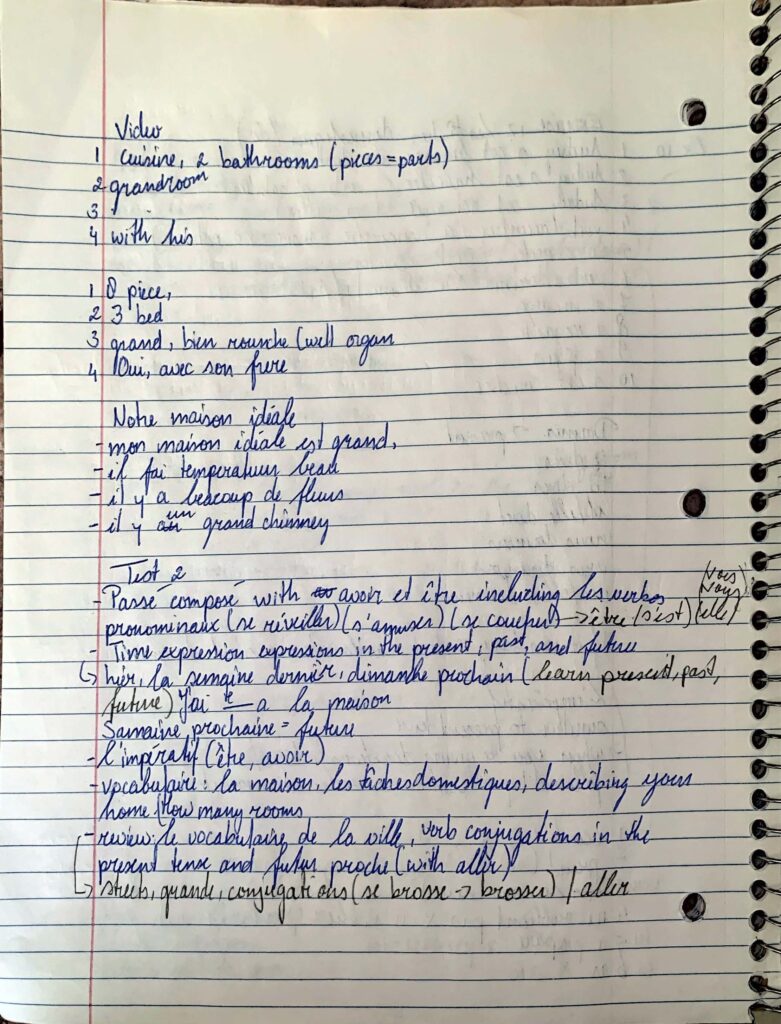 Video
1 cuisine, 2 bathrooms (pieces = parts)
2 grandroom
3
4 with his
1 8 piece,
2 3 bed
3 grand, bien (well organ
4 Oui, avec son frere
Notre maison idéale
- mon maison idéale est grand,
- il fai temperatuur beau
- il y a beacoup de fleurs
- il y a un grand chimney
Test 2
- Passé composé with avoir et être including les verbes
pronominaux (se réveiller) (s'amuser) (se coucher) → être (s'est) (elle)
- Time expression expressions in the present, past, and future
↳ hier, la semaine dernièr, dimanche prochain (learn present, past,
future) J'ai é a la maison
Samaine, prochaine = future
- l'impératif (être, avoir)
- vocabulaire: la maison, les tâches domestiques, describing your
home (How many rooms
- review: le vocabulaire de la ville, verb conjugations in the
present tense and futur proche (with aller)
↳ streets, grande, conjugations (se brosse → brosser) / aller